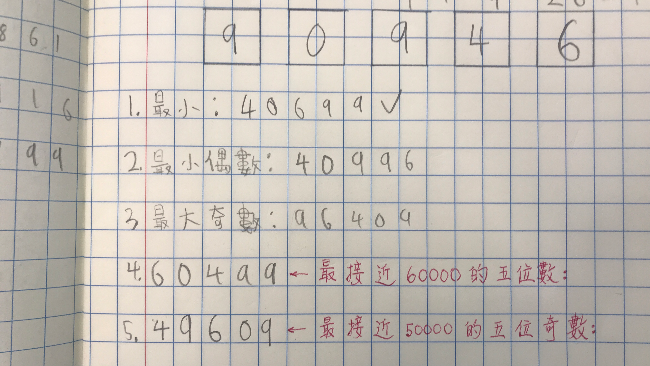 8 6 1
1 6
9 9
9 0 9 4 6
1. 最小: 40699 ✓
2. 最小偶數: 40996
3. 最大奇數: 96409
4. 60499 ← 最接近60000的五位數:
5. 49609 ← 最接近50000的五位奇數: